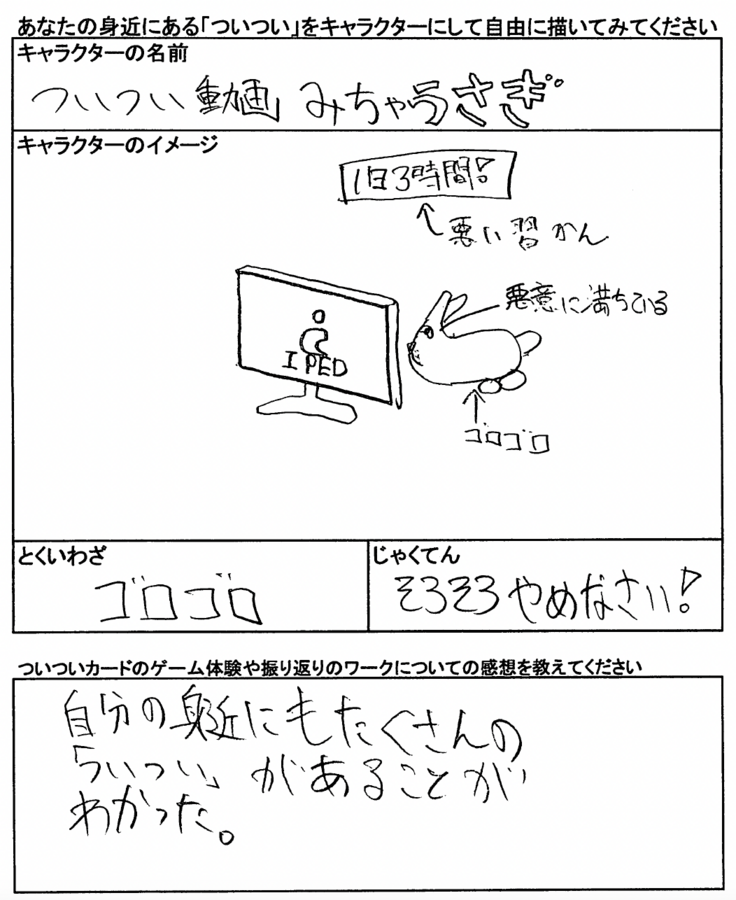 あなたの身近にある「ついつい」をキャラクターにして自由に描いてみてください
キャラクターの名前
ついつい動画みちゃうさぎ
キャラクターのイメージ
1日3時間!
悪い習かん
悪意に満ちている
I PED
ゴロゴロ
とくいわざ
ゴロゴロ
じゃくてん
そろそろやめなさい!
ついついカードのゲーム体験や振り返りのワークについての感想を教えてください
自分の身近にもたくさんの
「ついつい」があることが
わかった。